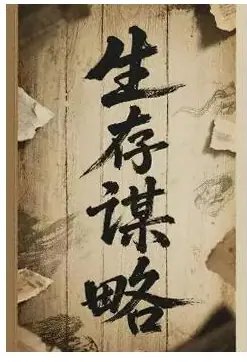 生存谋略